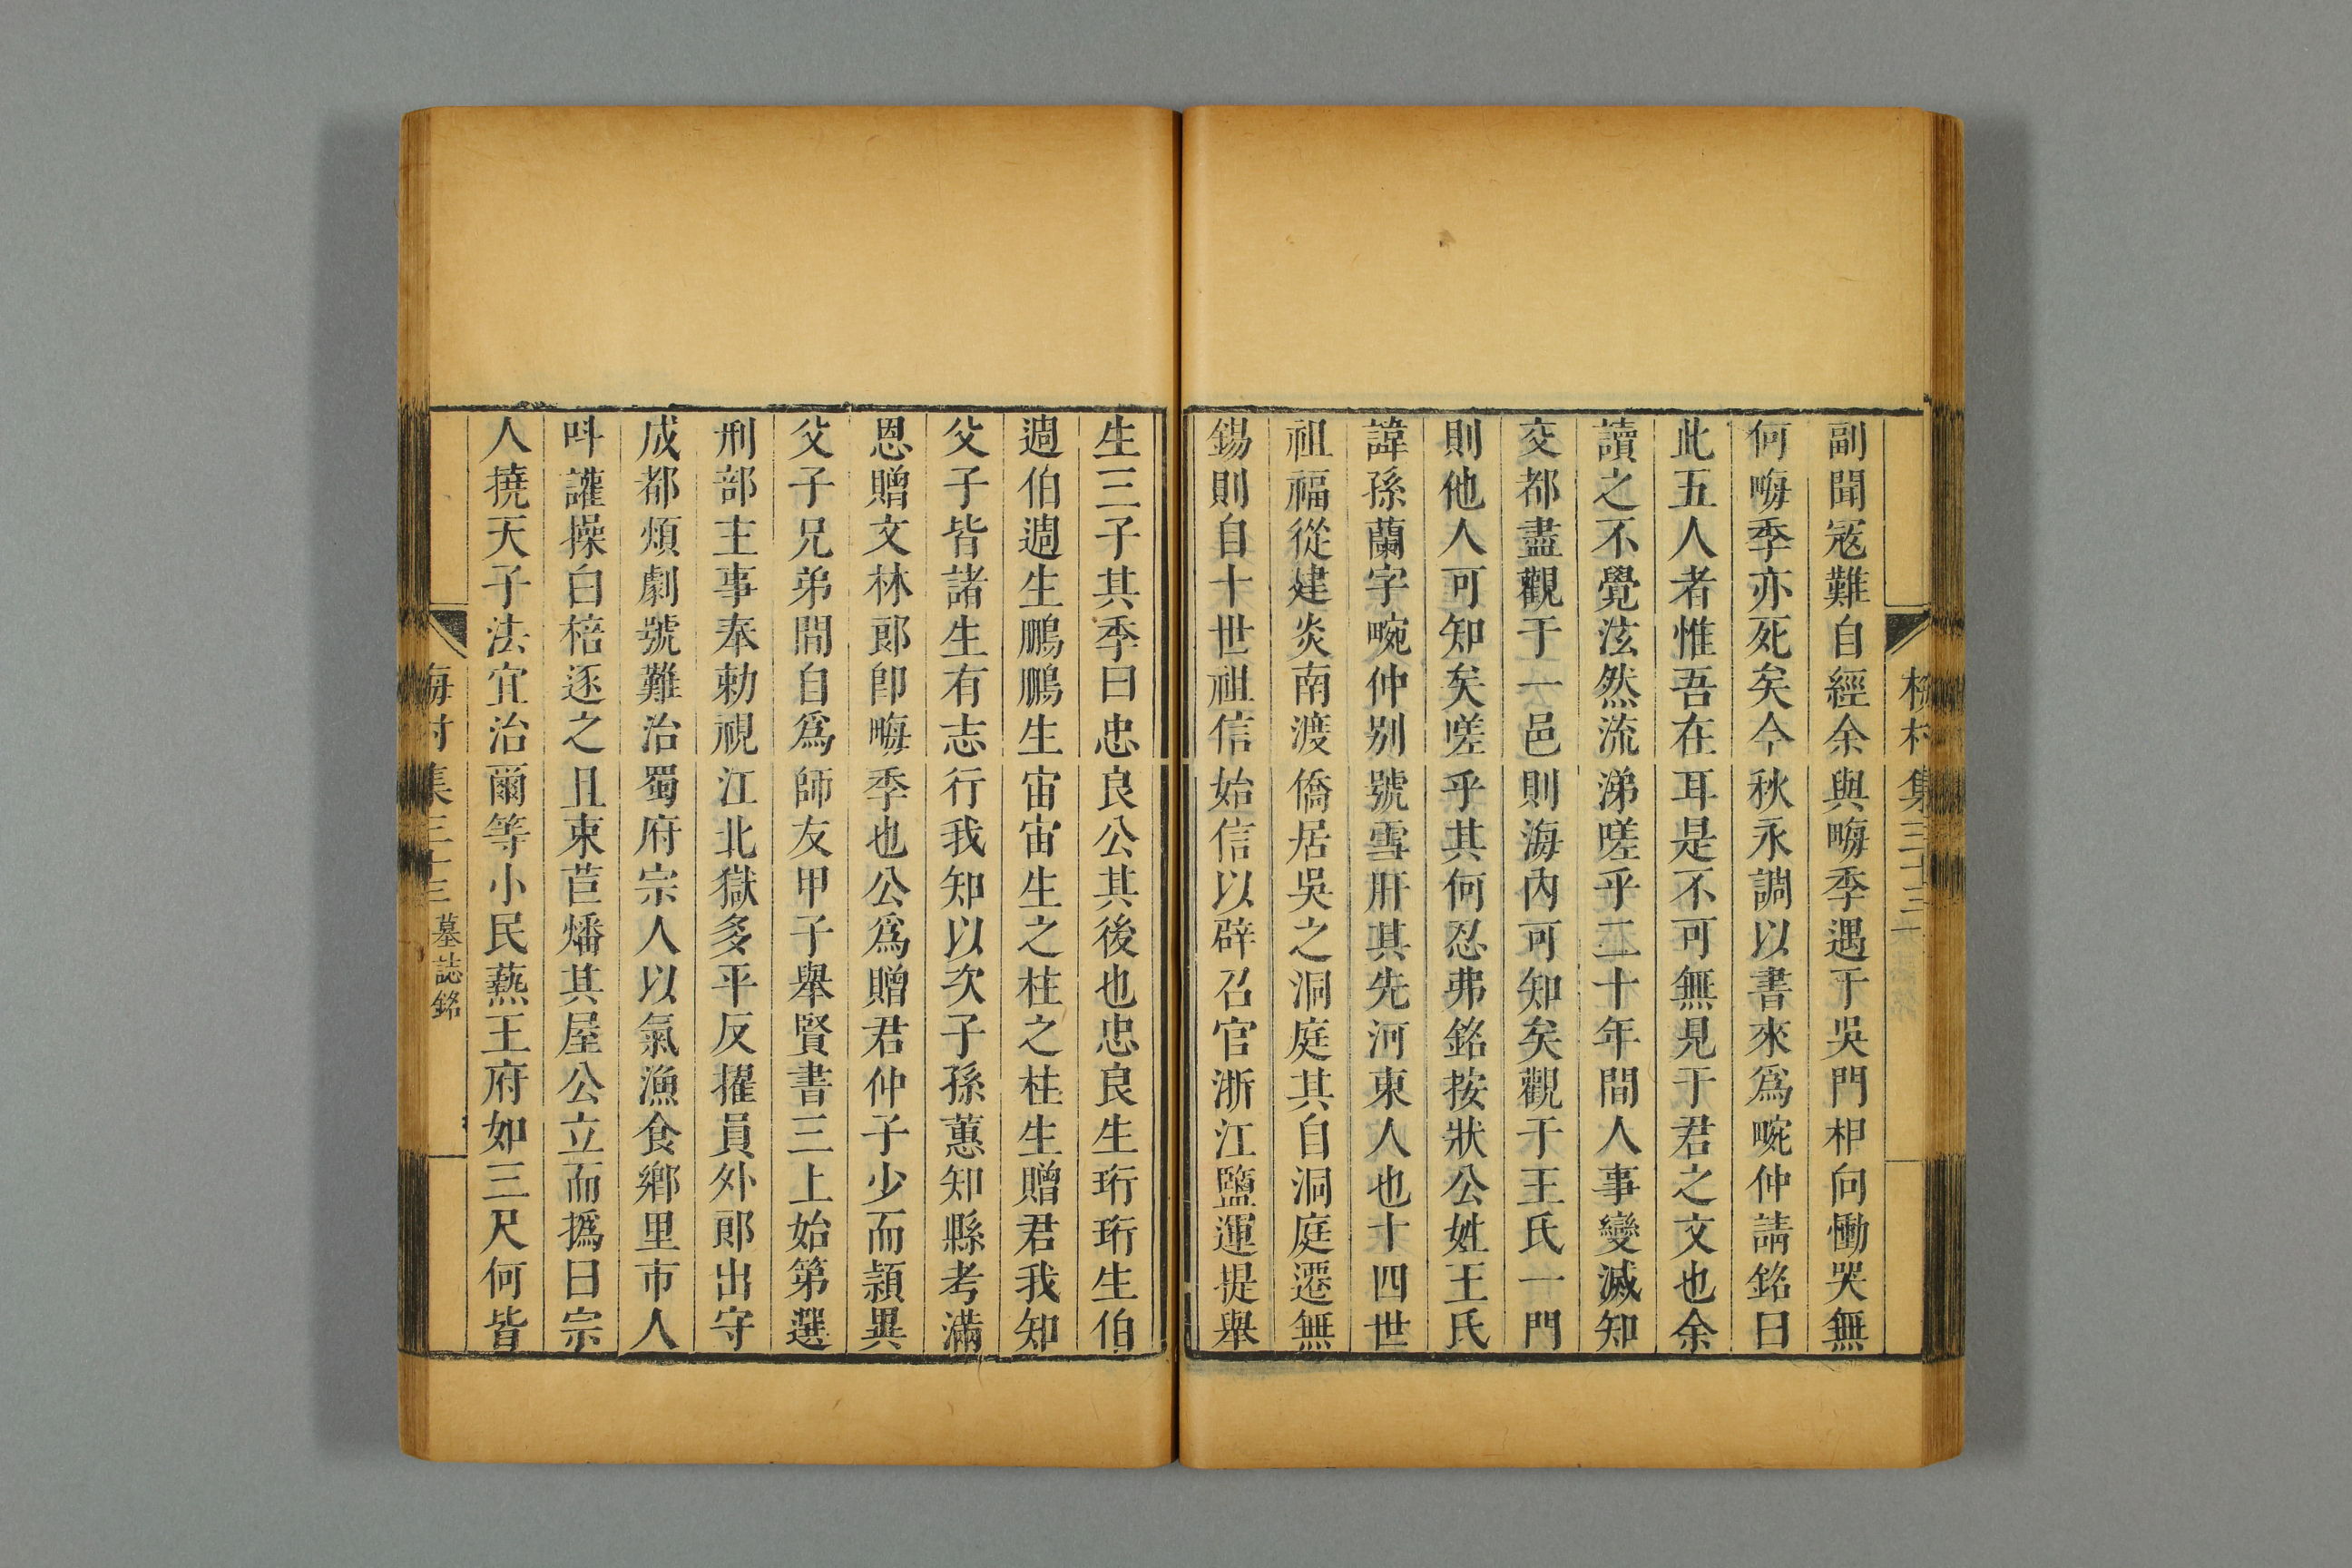 梅村集三十三
副聞寇難自經余與畮季遇于吳門相向慟哭無
何畮季亦死矣今秋永調以書來爲畹仲請銘曰
此五人者惟吾在耳是不可無見于君之文也余
讀之不覺泫然流涕嗟乎二十年間人事變滅知
交都盡觀于一邑則海內可知矣觀于王氏一門
則他人可知矣嗟乎其何忍弗銘按狀公姓王氏
諱孫蘭字畹仲别號雪肝其先河東人也十四世
祖福從建炎南渡僑居吳之洞庭其自洞庭遷無
錫則自十世祖信始信以辟召官浙江鹽運提舉
生三子其季曰忠良公其後也忠良生珩珩生伯
週伯週生鵬鵬生宙宙生之柱之柱生贈君我知
父子皆諸生有志行我知以次子孫蕙知縣考滿
恩贈文林郎卽畮季也公爲贈君仲子少而穎異
父子兄弟間自爲師友甲子舉賢書三上始第選
刑部主事奉勅視江北獄多平反擢員外郎出守
成都煩劇號難治蜀府宗人以氣漁食鄉里市人
呌讙操白棓逐之且束苣燔其屋公立而撝曰宗
人撓天子法宜治爾等小民爇王府如三尺何皆
梅村集三十三 墓誌銘